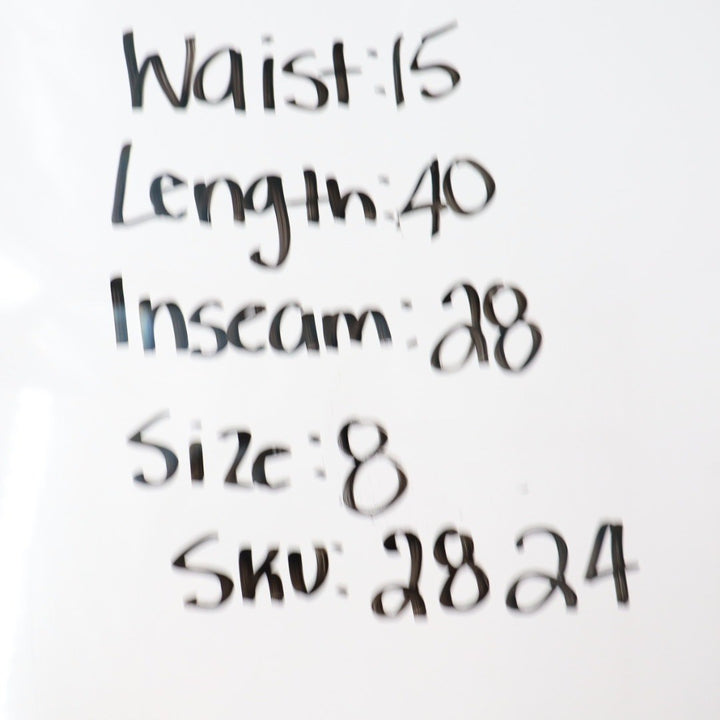 Waist:15
Length:40
Inseam:28
Size:8
SKU:2824